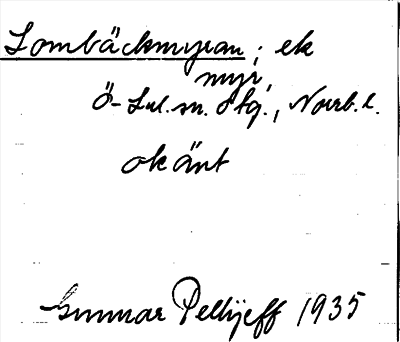 Lombäckmyran; ek
myr,
Ö-Lul. sn. Ötg., Norrb. l.
okänt
Gunnar Pellijeff 1935